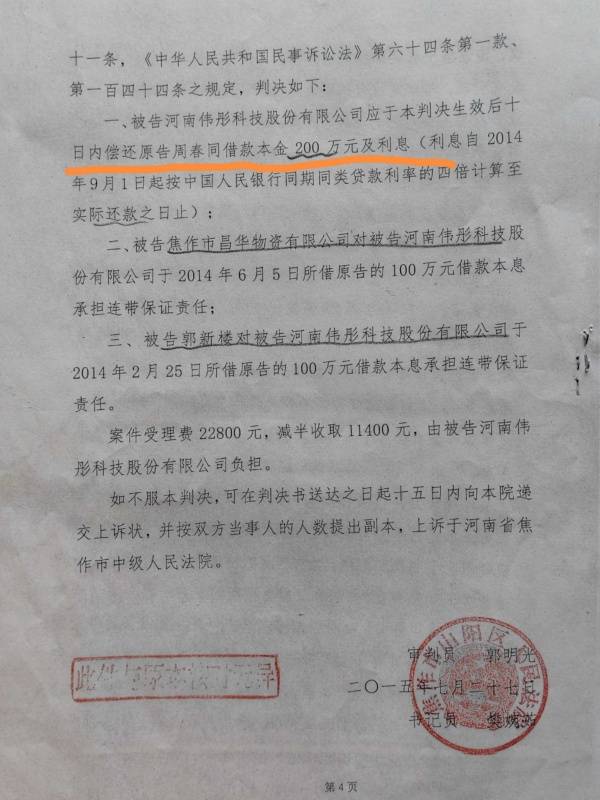 十一条，《中华人民共和国民事诉讼法》第六十四条第一款、
第一百四十四条之规定，判决如下：
一、被告河南伟彤科技股份有限公司应于本判决生效后十
日内偿还原告周春同借款本金 200 万元及利息（利息自 2014
年 9 月 1 日起按中国人民银行同期同类贷款利率的四倍计算至
实际还款之日止）；
二、被告焦作市昌华物资有限公司对被告河南伟彤科技股
份有限公司于 2014 年 6 月 5 日所借原告的 100 万元借款本息
承担连带保证责任；
三、被告郭新楼对被告河南伟彤科技股份有限公司于
2014 年 2 月 25 日所借原告的 100 万元借款本息承担连带保证
责任。
案件受理费 22800 元，减半收取 11400 元，由被告河南伟
彤科技股份有限公司负担。
如不服本判决，可在判决书送达之日起十五日内向本院递
交上诉状，并按双方当事人的人数提出副本，上诉于河南省焦
作市中级人民法院。
审判员 郭明光
此件与原本核对无异
二〇一五年七月二十七日
书记员 樊
第 4 页